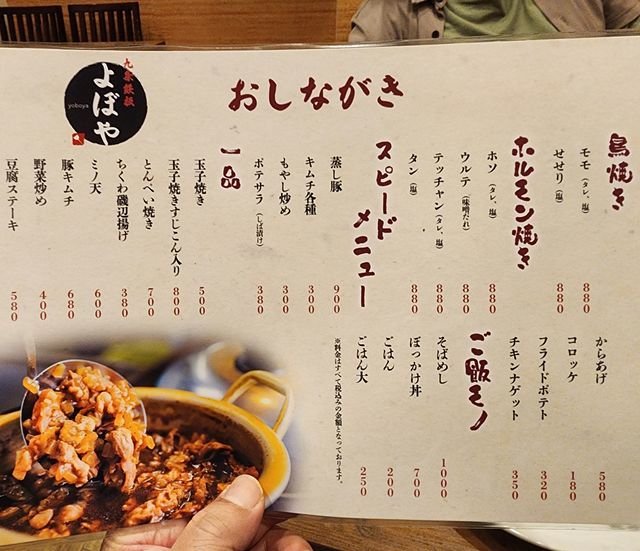 九条鉄板
よぼや
yoboya
おしながき
鳥焼き
モモ（タレ、塩） 880
せせり（塩） 880
ホルモン焼き
ホソ（タレ、塩） 880
ウルテ（味噌だれ） 880
テッチャン（タレ、塩） 880
タン（塩） 880
スピードメニュー
蒸し豚 900
キムチ各種 300
もやし炒め 300
ポテサラ（しば漬け） 380
一品
玉子焼き 500
玉子焼きすじこん入り 800
とんぺい焼き 700
ちくわ磯辺揚げ 380
ミノ天 600
豚キムチ 680
野菜炒め 400
豆腐ステーキ 580
からあげ 580
コロッケ 180
フライドポテト 320
チキンナゲット 350
ご飯モノ
そばめし 1000
ぼっかけ丼 700
ごはん 200
ごはん大 250
※料金はすべて税込みの金額となっております。